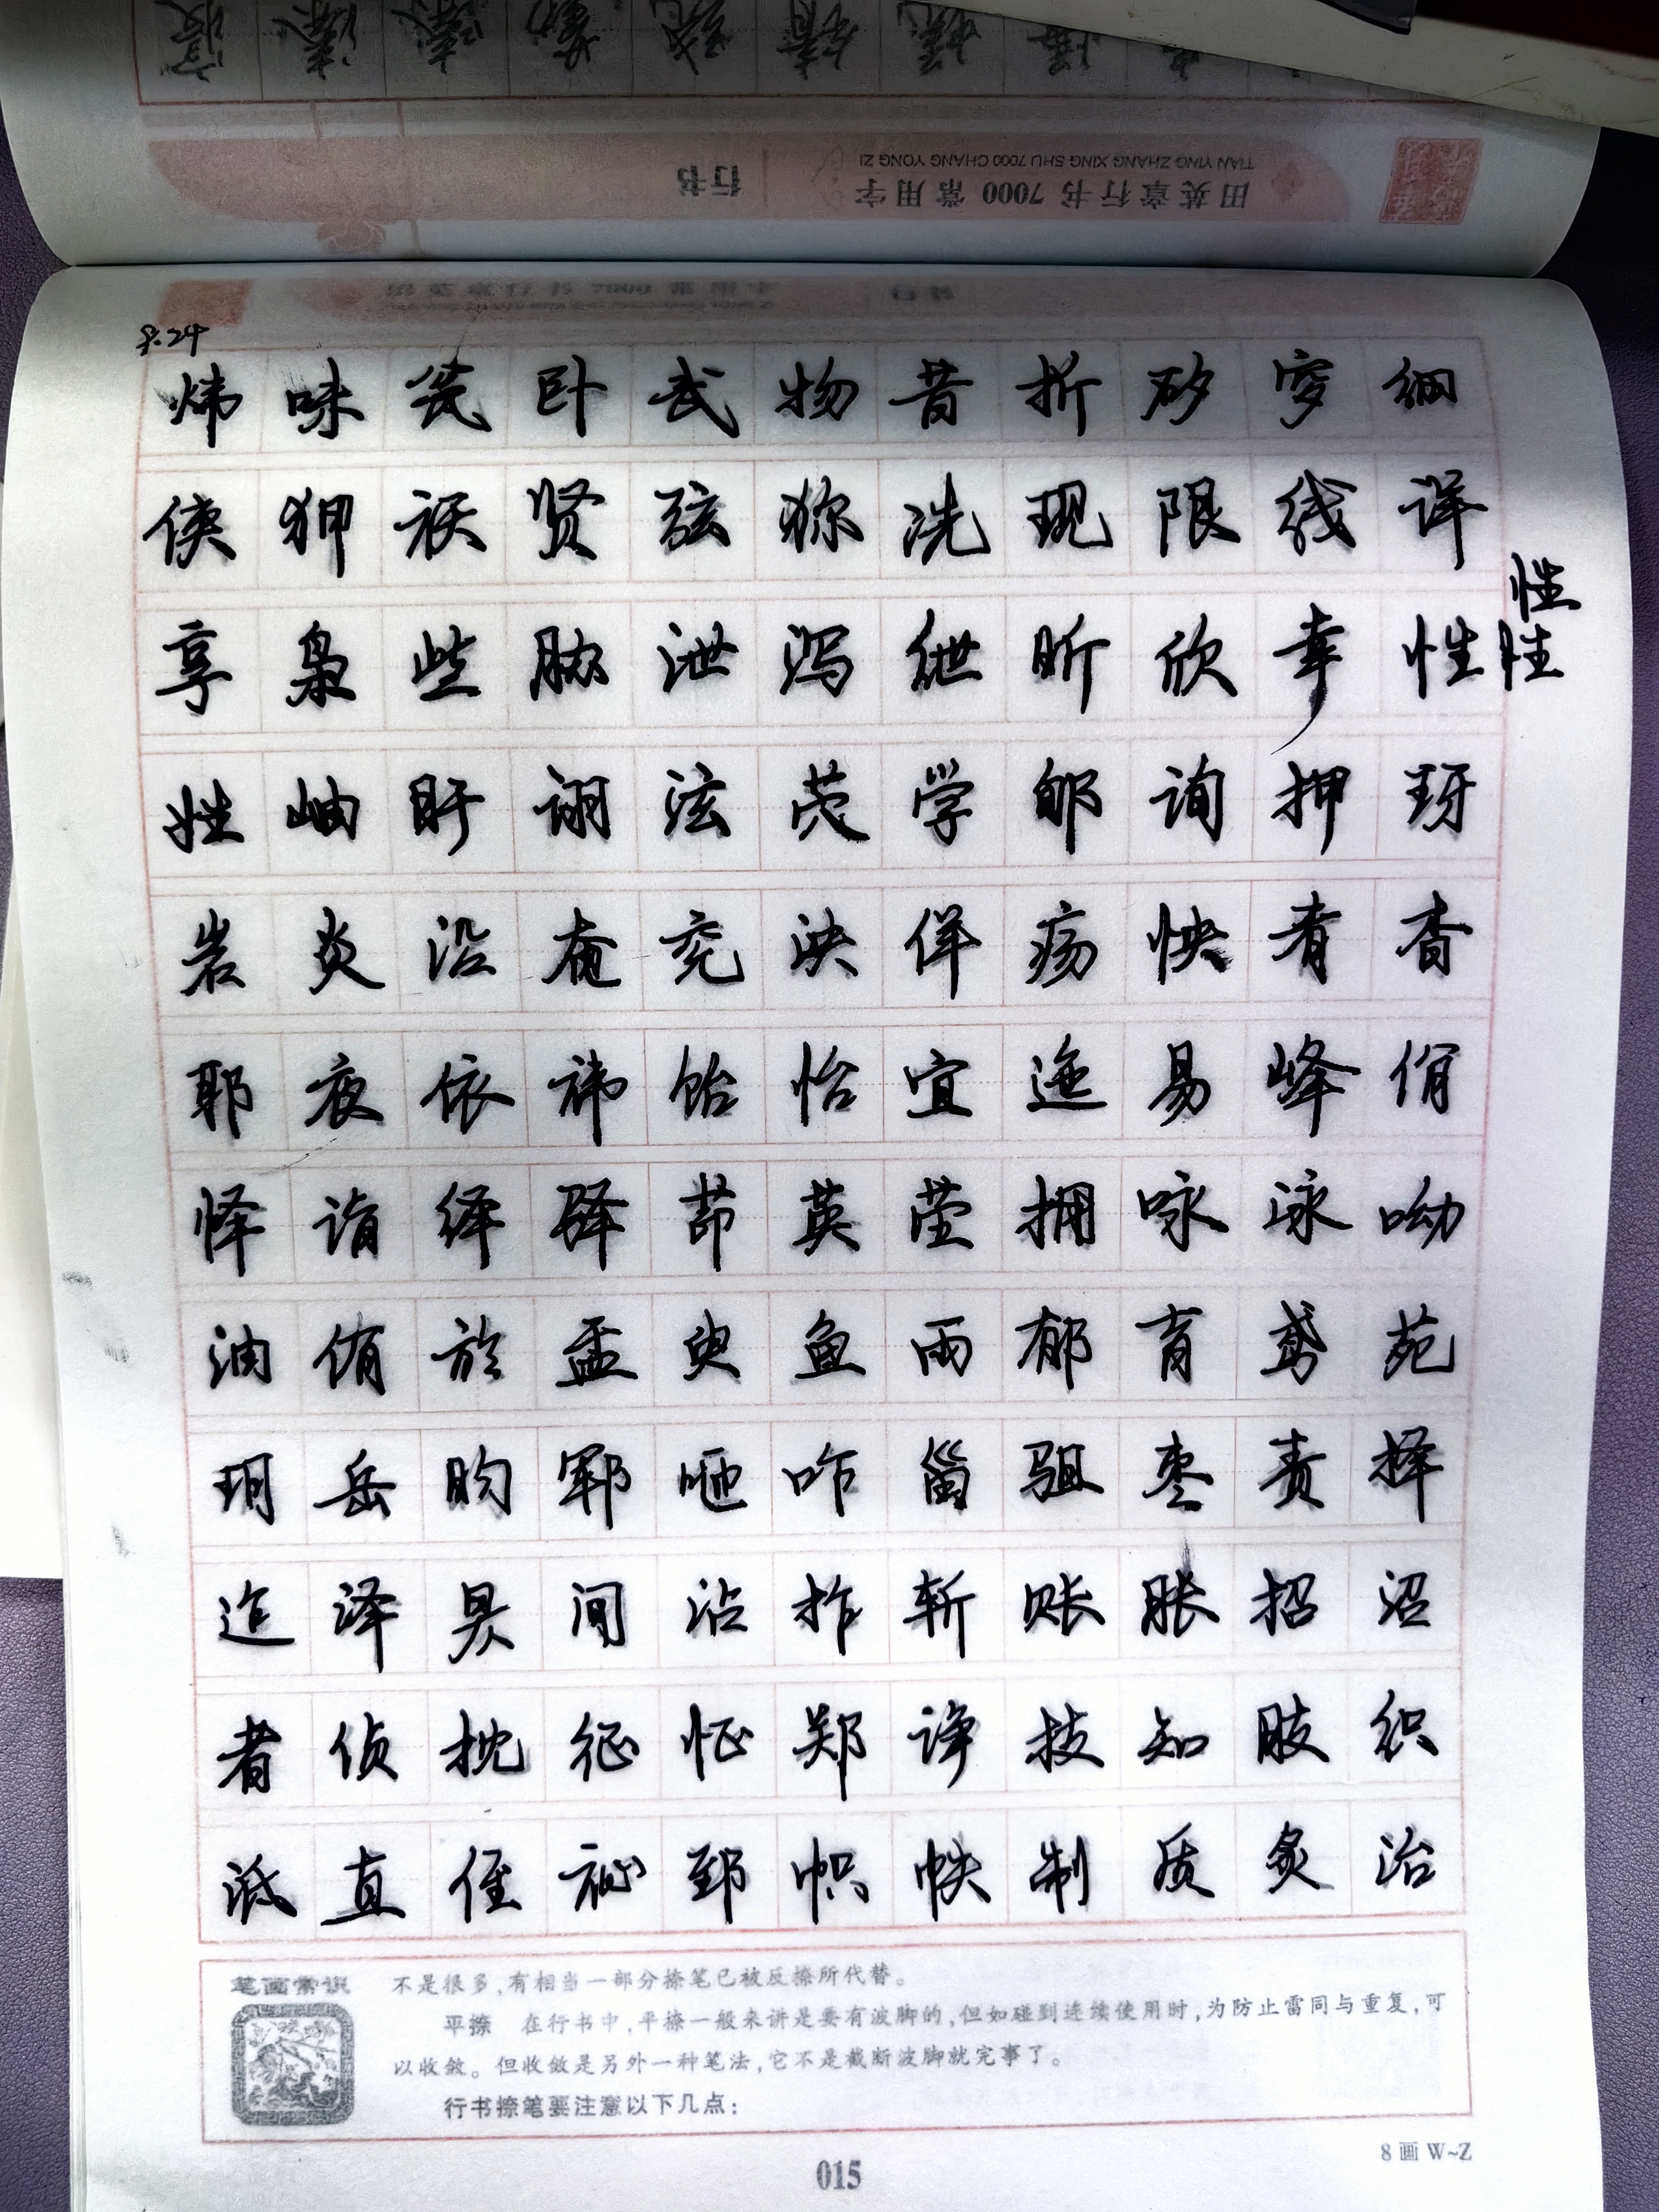 田英章行书 7000 常用字
行书
TIAN YING ZHANG XING SHU 7000 CHANG YONG ZI
8.24
炜 味 瓮 卧 武 物 昔 析 矽 穸 细
侠 狎 祆 贤 弦 狝 冼 现 限 线 详
性
享 枭 些 胁 泄 泻 绁 昕 欣 幸 性 性
姓 岫 盱 诩 泫 学 郇 询 押 玡
岩 炎 沿 奄 兖 泱 佯 疡 怏 肴 杳
耶 夜 依 祎 饴 怡 宜 迤 易 峄 佾
怿 诣 绎 驿 茚 英 茔 拥 咏 泳 呦
油 侑 於 盂 臾 鱼 雨 郁 育 鸢 苑
玥 岳 昀 郓 咂 咋 甾 驵 枣 责 择
迮 泽 昃 诈 沾 拃 斩 账 胀 招 沼
者 侦 枕 征 怔 郑 诤 枝 知 肢 织
泜 直 侄 祉 郅 帜 帙 制 质 炙 治
笔画常识
不是很多,有相当一部分捺笔已被反捺所代替。
平捺 在行书中,平捺一般来讲是要有波脚的,但如碰到连续使用时,为防止雷同与重复,可
以收敛。但收敛是另外一种笔法,它不是截断波脚就完事了。
行书捺笔要注意以下几点:
8 画 W~Z
015